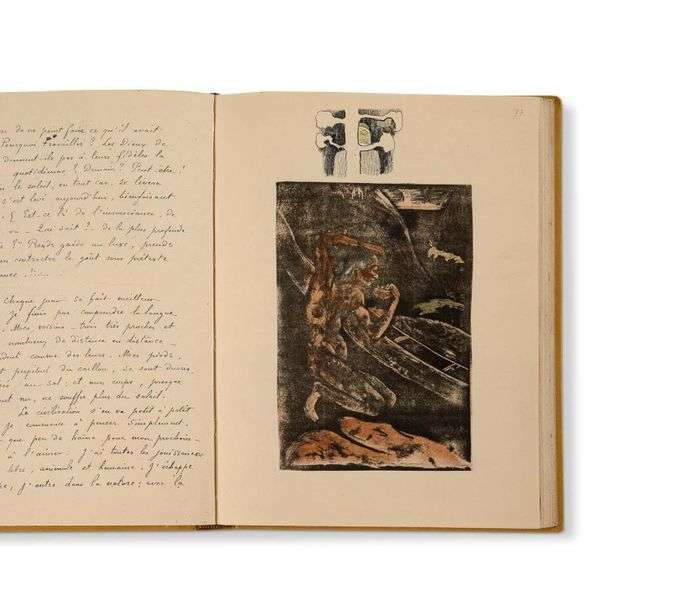 de ne point faire ce qu'il avait
Pourquoi travailler ? Les Dieux
donner à leurs fidèles la
quotidienne ? Demain ? Peut-être !
le soleil, en tout cas, se levera
s'est levé aujourd'hui, bienfaisant
Est-ce là de l'insouciance, de
ou - Que sait ? - de la plus profonde
? Prends garde au luxe, prends
contracter le goût sous prétexte
Chaque jour se fait meilleur
Je finis par comprendre la langue
Mes voisins - trois très proches et
nombreux de distance en distance -
comme des leurs. Mes pieds,
perpétuel du caillou, se sont durcis
au sol ; et mon corps, presque
nu, ne souffre plus du soleil.
La civilisation s'en va petit à petit
Je commence à penser simplement,
que peu de haine pour mon prochain -
à l'aimer. J'ai toutes les jouissances
libre, animale et humaine. J'échappe
j'entre dans la nature ; avec la